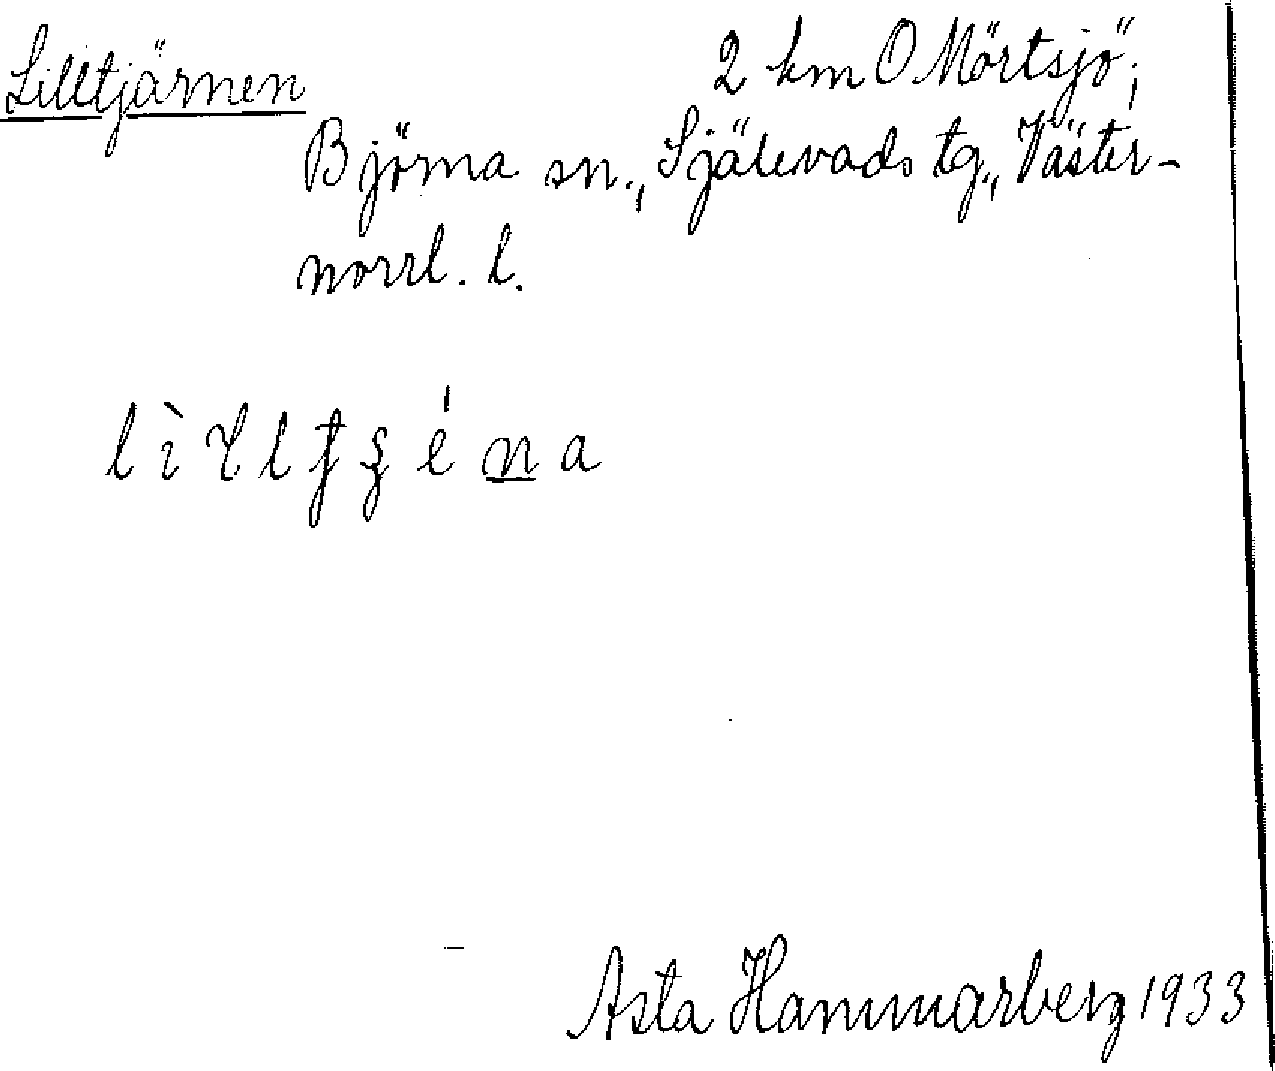 Lilltjärnen
2 km O Mörtsjö,
Björna sn., Själevads tg., Väster-
norrl. l.
Asta Hammarberg 1933